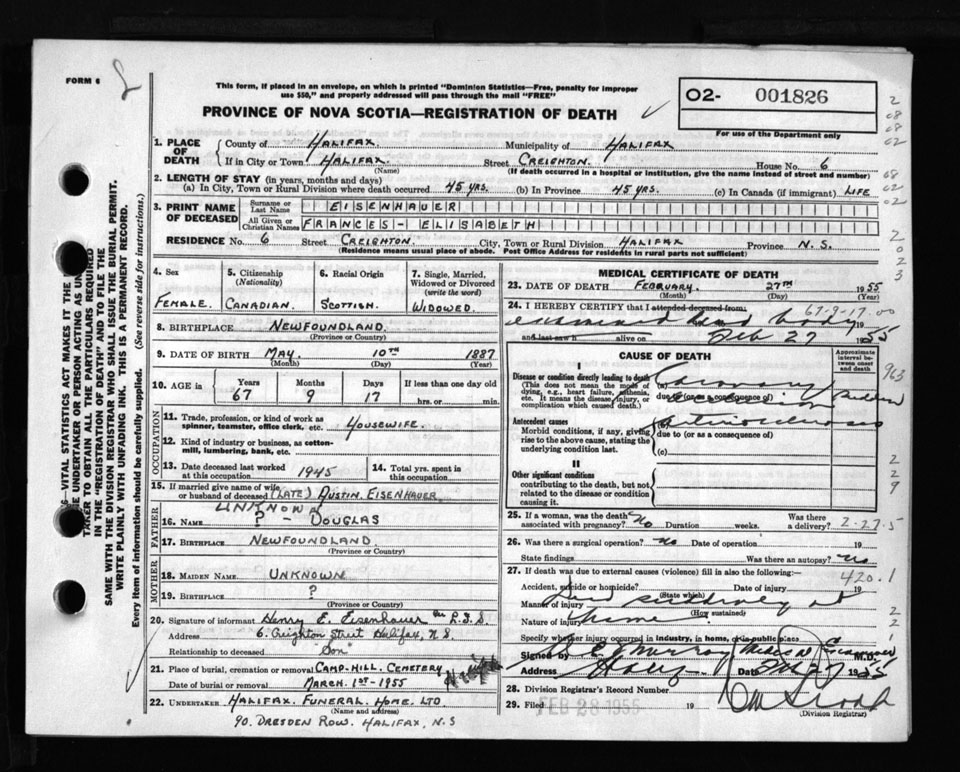 FORM 6
This form, if placed in an envelope, on which is printed "Dominion Statistics—Free, penalty for improper
use $50," and properly addressed will pass through the mail "FREE"
PROVINCE OF NOVA SCOTIA—REGISTRATION OF DEATH
O2- 001826
For use of the Department only
1. PLACE OF DEATH
County of HALIFAX. Municipality of HALIFAX
If in City or Town HALIFAX. Street CREIGHTON. House No. 6
(Name) (If death occurred in a hospital or institution, give the name instead of street and number)
2. LENGTH OF STAY (in years, months and days)
(a) In City, Town or Rural Division where death occurred 45 YRS. (b) In Province 45 YRS. (c) In Canada (if immigrant) LIFE
3. PRINT NAME OF DECEASED
Surname or Last Name EISENHAUER
All Given or Christian Names FRANCES- ELISABETH
RESIDENCE No. 6 Street CREIGHTON. City, Town or Rural Division HALIFAX Province N. S.
(Residence means usual place of abode. Post Office Address for residents in rural parts not sufficient)
4. Sex FEMALE.
5. Citizenship (Nationality) CANADIAN.
6. Racial Origin SCOTTISH.
7. Single, Married, Widowed or Divorced (write the word) WIDOWED.
8. BIRTHPLACE NEWFOUNDLAND.
(Province or Country)
9. DATE OF BIRTH MAY. 10TH 1887
(Month) (Day) (Year)
10. AGE in Years Months Days If less than one day old
67 9 17 hrs. or min.
OCCUPATION
11. Trade, profession, or kind of work as spinner, teamster, office clerk, etc. HOUSEWIFE.
12. Kind of industry or business, as cotton-mill, lumbering, bank, etc.
13. Date deceased last worked at this occupation 1945
14. Total yrs. spent in this occupation
15. If married give name of wife or husband of deceased (LATE) AUSTIN. EISENHAUER
FATHER
UNKNOWN
16. NAME ? - DOUGLAS
17. BIRTHPLACE NEWFOUNDLAND.
(Province or Country)
MOTHER
18. MAIDEN NAME UNKNOWN
19. BIRTHPLACE ?
(Province or Country)
20. Signature of informant Henry E. Eisenhauer
Address 6. Creighton Street Halifax, N. S.
Relationship to deceased "Son"
21. Place of burial, cremation or removal CAMP-HILL. CEMETERY
Date of burial or removal MARCH. 1ST-1955
22. UNDERTAKER HALIFAX. FUNERAL. HOME. LTD
(Name and address)
90. DRESDEN ROW. HALIFAX, N.S
MEDICAL CERTIFICATE OF DEATH
23. DATE OF DEATH FEBRUARY. 27TH 1955
(Month) (Day) (Year)
67-9-17-00
24. I HEREBY CERTIFY that I attended deceased from:
examined dead body 19
and last saw h alive on Feb 27 1955
CAUSE OF DEATH
Approximate interval between onset and death
I
Disease or condition directly leading to death
(This does not mean the mode of dying, e.g., heart failure, asthenia, etc. It means the disease, injury, or complication which caused death.)
(a) Coronary
due to (or as a consequence of)
Sudden
963
Antecedent causes
Morbid conditions, if any, giving rise to the above cause, stating the underlying condition last.
(b)
due to (or as a consequence of)
(c)
II
Other significant conditions
contributing to the death, but not related to the disease or condition causing it.
25. If a woman, was the death associated with pregnancy? No Duration weeks. Was there a delivery?
2-27-5
26. Was there a surgical operation? No Date of operation 19
State findings Was there an autopsy? No
27. If death was due to external causes (violence) fill in also the following:
420.1
Accident, suicide or homicide? Date of injury 19
(State which)
Manner of injury Died suddenly at
(How sustained)
Nature of injury home
Specify whether injury occurred in industry, in home, or in public place
Signed by Murray Medical Examiner M.D.
Address Date Feb 27 1955
28. Division Registrar's Record Number
29. Filed FEB 28 1955 19
(Division Registrar)
VITAL STATISTICS ACT MAKES IT THE
UNDERTAKER OR PERSON ACTING AS
TO OBTAIN ALL THE PARTICULARS REQUIRED
IN THE "REGISTRATION OF DEATH" AND TO FILE THE
SAME WITH THE DIVISION REGISTRAR WHO SHALL ISSUE THE BURIAL PERMIT.
WRITE PLAINLY WITH UNFADING INK. THIS IS A PERMANENT RECORD.
Every item of information should be carefully supplied. (See reverse side for instructions.)